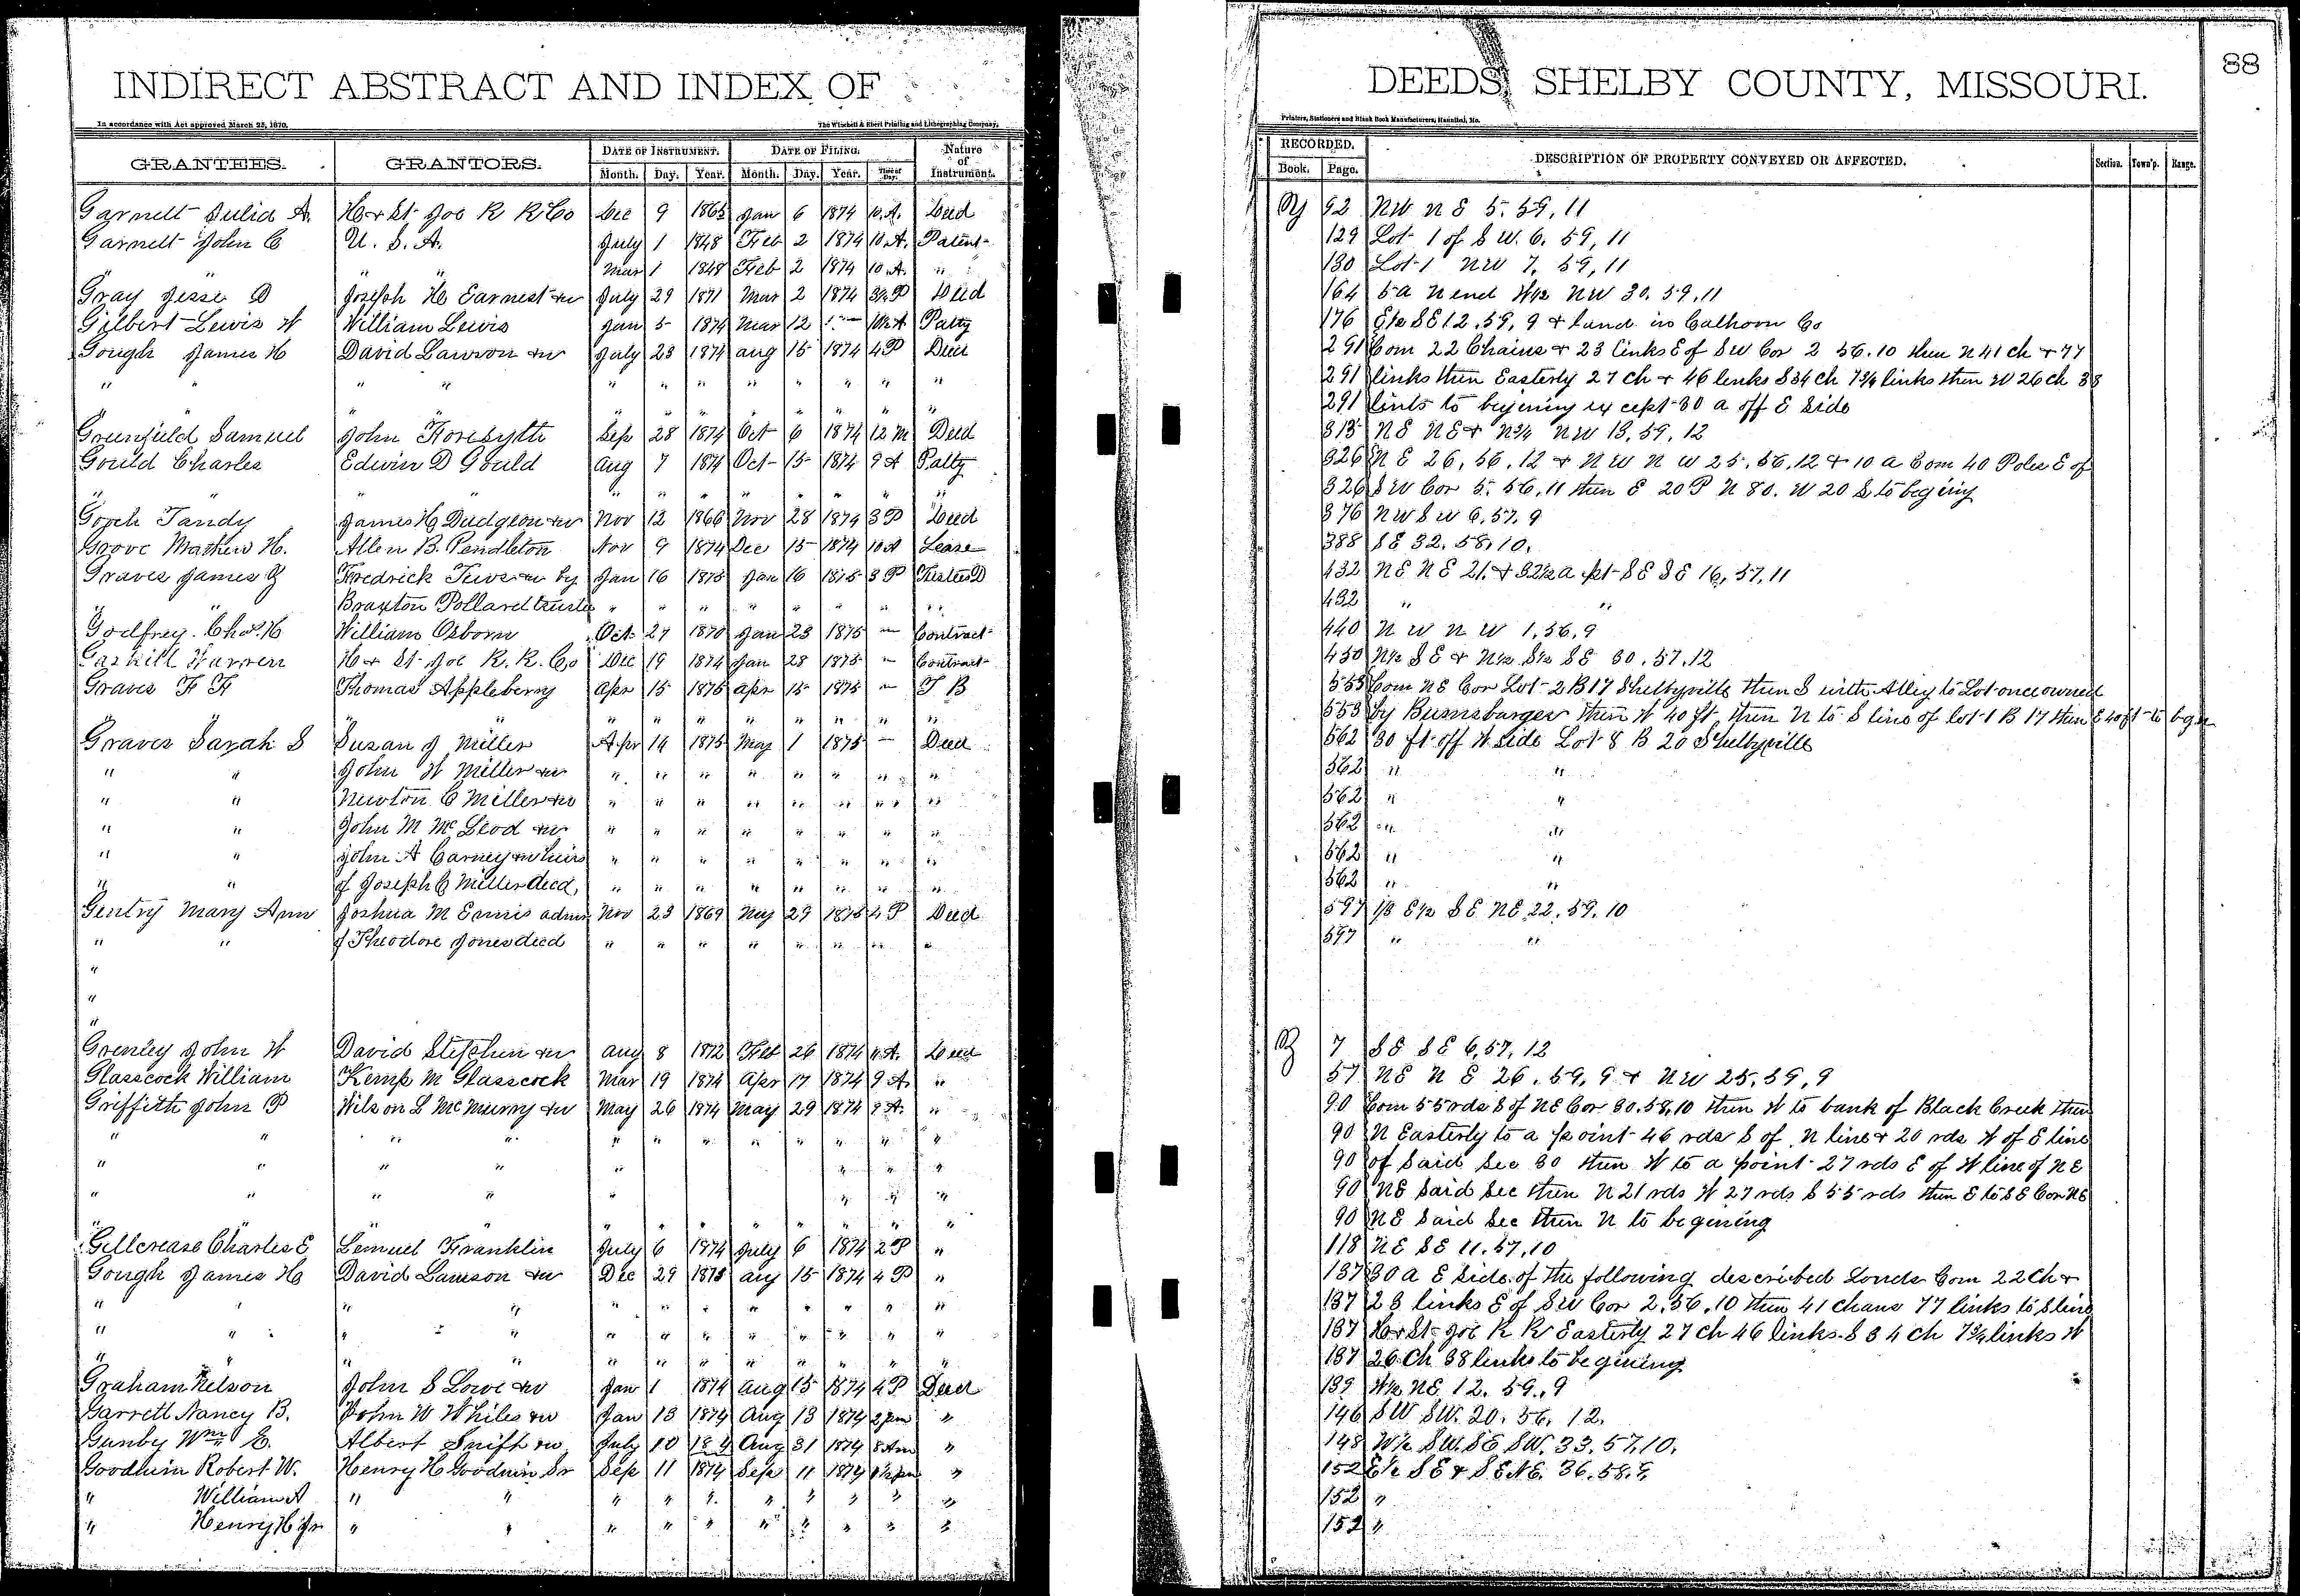 INDIRECT ABSTRACT AND INDEX OF
In accordance with Act approved March 25, 1870.
The Winchell & Ebert Printing and Lithographing Company,
GRANTEES. GRANTORS. DATE OF INSTRUMENT. DATE OF FILING. Nature of Instrument.
Month. Day. Year. Month. Day. Year.
Garnett Julia A. H & St Joe R R Co Dec 9 1865 Jan 6 1874 10 A. Deed
Garnett John C U. S. A. July 1 1848 Feb 2 1874 10 A. Patent
Mar 1 1848 Feb 2 1874 10 A. "
Gray Jesse D Joseph H Earnest &w July 29 1871 Mar 2 1874 Deed
Gilbert Lewis W William Lewis Jan 5 1874 Mar 12 Patty
Gough James H David Lawson &w July 23 1874 Aug 15 1874 4 P Deed
" " " " " " " " " " "
" " " " " " " " "
Greenfield Samuel John Forsythe Sep 28 1874 Oct 6 1874 12 M Deed
Gould Charles Edwin D Gould Aug 7 1874 Oct 15 1874 9 A Patty
" " " " " " " " " "
Gooch Tandy James H Dudgeon &w Nov 12 1866 Nov 28 1874 3 P Deed
Groove Mathew H. Allen B. Pendleton Nov 9 1874 Dec 15 1874 10 A Lease
Graves James Fredrick &w by Jan 16 1875 Jan 16 1875 3 P Trustee D
" " Braxton Pollard trustee " " " " " " " "
Godfrey Chas. H William Osborn Oct 27 1870 Jan 23 1875 — Contract
Gaskill Warren H & St Joe R. R. Co Dec 19 1874 Jan 28 1875 — Contract
Graves F F Thomas Appleberry Apr 15 1875 Apr 15 1875 — T B
" " " " " " " " "
Graves Sarah S Susan J Miller Apr 14 1875 May 1 1875 — Deed
" " John W Miller &w " " " " " " " "
" " Newton C Miller &w " " " " " " " "
" " John M McLeod &w " " " " " " " "
" " John A Carney &w heirs " " " " " " " "
" " of Joseph C Miller decd, " " " " " " " "
Gentry Mary Ann Joshua M Ennis admin Nov 23 1869 May 29 1875 4 P Deed
" " of Theodore Jones decd " " " " " " " "
"
"
"
Grenley John W David Stephen &w Aug 8 1872 Feb 26 1874 11 A. Deed
Glasscock William Kemp M Glasscock Mar 19 1874 Apr 17 1874 9 A. "
Griffith John P Wilson L McMurry &w May 26 1874 May 29 1874 9 A. "
" " " " " " " " " " " "
" " " " " " " "
" " " " " " " "
" " " " " " " "
Gillcrease Charles E Lemuel Franklin July 6 1874 July 6 1874 2 P "
Gough James H David Lawson &w Dec 29 1873 Aug 15 1874 4 P "
" " " " " " " " " " " "
" " " " " " " " " " " "
" " " " " " " " " " " "
Graham Nelson John S Lowe &w Jan 1 1874 Aug 15 1874 4 P Deed
Garrett Nancy B. John W Whiles &w Jan 13 1874 Aug 13 1874 2 pm "
Gunby Wm E. Albert &w July 10 Aug 31 1874 8 Am "
Goodwin Robert W. Henry H Goodwin Sr Sep 11 1874 Sep 11 1874 "
" William A " " " " " " " " " "
" Henry H Jr " " " " " " " " " "
DEEDS, SHELBY COUNTY, MISSOURI. 88
Printers, Stationers and Blank Book Manufacturers, Hannibal, Mo.
RECORDED. DESCRIPTION OF PROPERTY CONVEYED OR AFFECTED. Section. Town'p. Range.
Book. Page.
92 NW NE 5. 59, 11
129 Lot 1 of S W. 6. 59, 11
130 Lot 1 NW 7. 59, 11
164 5 a N end W1/2 NW 30. 59. 11
176 E1/2 SE 12. 59, 9 & land in Calhoon Co
291 Com 22 Chains & 23 links E of SW Cor 2 56. 10 then N 41 ch & 77
291 links then Easterly 27 ch & 46 links S 34 ch 7 3/4 links then W 26 ch 38
291 links to begining except 30 a off E side
313 NE NE & N3/4 NW 13. 59. 12
326 NE 26, 56. 12 & NW NW 25. 56. 12 & 10 a Com 40 Poles E of
326 SW Cor 5. 56. 11 then E 20 P N 80. W 20 S to begining
376 NW SW 6. 57. 9
388 SE 32. 58. 10.
432 NE NE 21. & 32 1/2 a pt SE SE 16, 57, 11
432 " "
440 NW NW 1. 56. 9
450 N1/2 SE & N1/2 S1/2 SE 30. 57. 12
553 Com NE Cor Lot 2 B 17 Shelbyville then S with Alley to Lot once owned
553 by then W 40 ft then N to S line of lot 1 B 17 then E 40 ft to begin
562 30 ft off W side Lot 8 B 20 Shelbyville
562 " "
562 " "
562 " "
562 " "
562 " "
597 1/3 E1/2 SE NE 22. 59. 10
597 " "
7 SE SE 6, 57, 12
57 NE NE 26. 59, 9 & NW 25. 59, 9
90 Com 55 rds S of NE Cor 30. 58. 10 then W to bank of Black Creek then
90 N Easterly to a point 46 rds S of N line & 20 rds W of E line
90 of said Sec 30 then W to a point 27 rds E of W line of NE
90 NE said Sec then N 21 rds W 27 rds S 55 rds then E to SE Cor NE
90 NE said Sec then N to begining
118 NE SE 11. 57, 10
137 30 a E side of the following described Lands Com 22 Ch &
137 23 links E of SW Cor 2. 56. 10 then 41 chans 77 links to S line
137 H & St Joe R R Easterly 27 ch 46 links S 34 ch 7 3/4 links W
137 26 Ch 38 links to begining
139 W1/2 NE 12. 59. 9
146 SW SW. 20. 56. 12.
148 W1/2 SW. SE SW. 33. 57. 10.
152 E1/2 SE & SE NE. 36. 58. 9.
152 "
152 "